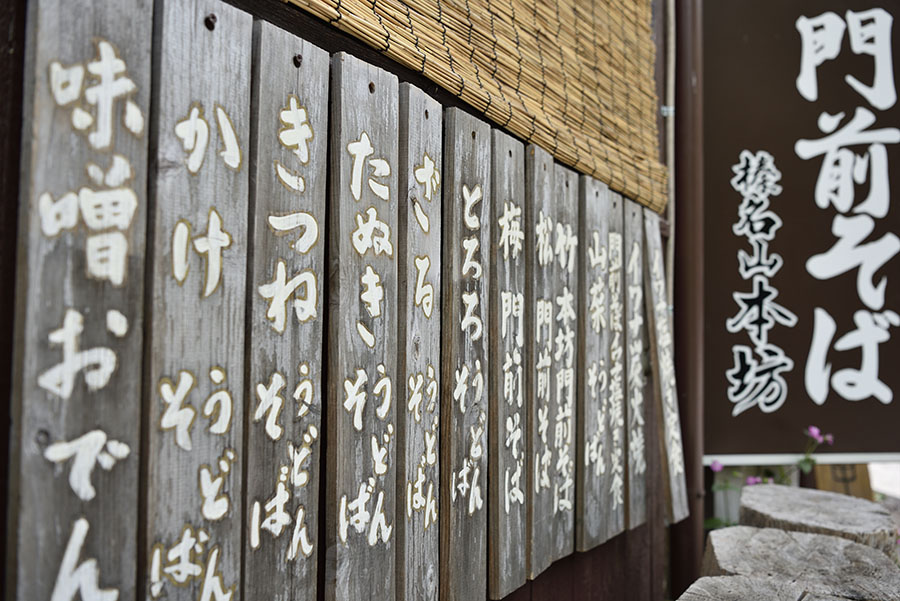 門前そば
榛名山本坊
味噌おでん
かけ
そば
うどん
きつね
そば
うどん
たぬき
そば
うどん
ざる
そば
うどん
とろろ
そば
うどん
梅 門前そば
松 門前そば
竹 本坊門前そば
山菜
そば
うどん